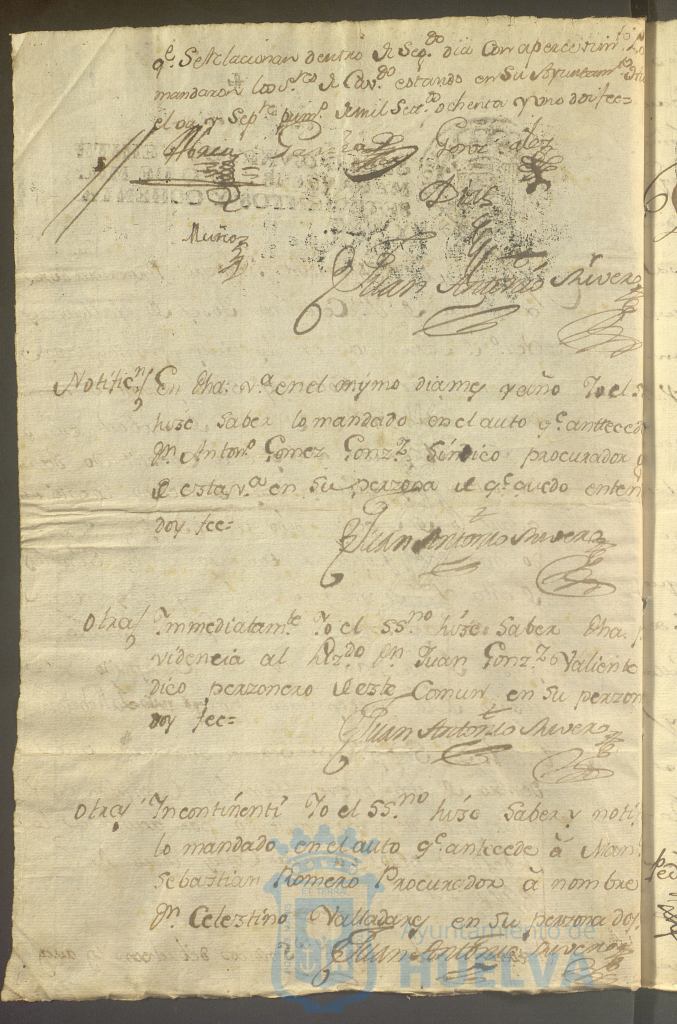 qe. Se Relacionan dentro de Segdo. dia con apercevimto.
mandaron los Sres. de Cavdo. estando en Su Ayuntamto.
el oy y Septe. prim. de mil Setzos. ochenta y uno doi fee=
Garcia González
Dias
Muñoz
Juan Antonio Rivero
Notificn. En dha. va. en el mismo dia mes y año Yo el S
hise Saber lo mandado en el auto qe. anttecede
Dn. Antono. Gomez Gonzz. Síndico procurador
de esta va. en su perzona de qe. quedo enten
doy fee=
Juan Antonio Rivero
Otra Immediatamte. Yo el SSno. hise Saber dha. p
videncia al Lizdo. Dn. Juan Gonzz. Valiente
dico perzonero de este Comun en su perzon
doy fee=
Juan Antonio Rivero
Otra Incontinenti Yo el SSno. hise Saber y noti
lo mandado en el auto qe. antecede â Man
Sebastian Romero Procurador â nombre
Dn. Celestino Valladares en su perzona doy
Juan Antonio Rivero
Ayuntamiento de
HUELVA